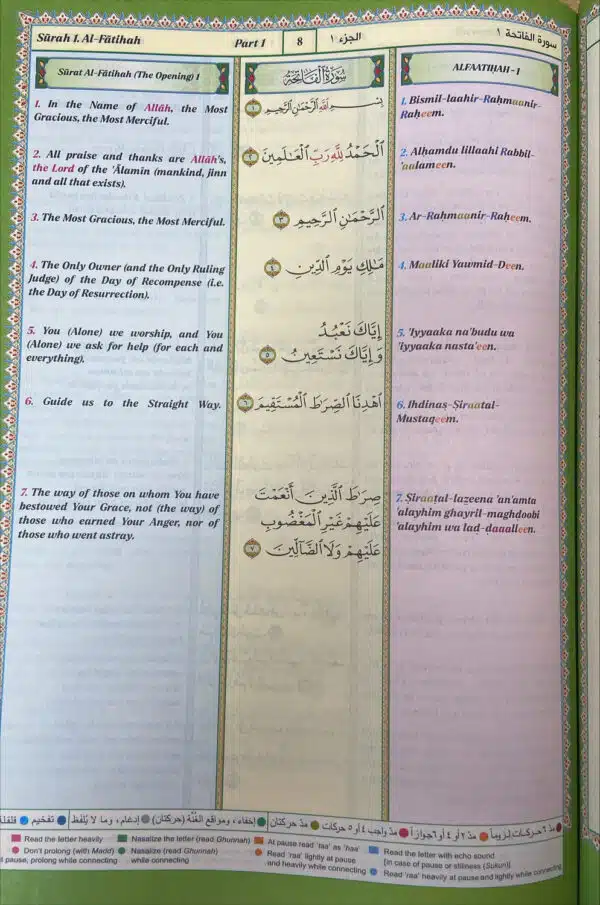 Sūrah 1. Al-Fātihah
Part 1
8
الجزء ١
سورة الفاتحة ١
Sūrat Al-Fātihah (The Opening) 1
1. In the Name of Allâh, the Most
Gracious, the Most Merciful.
2. All praise and thanks are Allâh's,
the Lord of the 'Ālamin (mankind, jinn
and all that exists).
3. The Most Gracious, the Most Merciful.
4. The Only Owner (and the Only Ruling
Judge) of the Day of Recompense (i.e.
the Day of Resurrection).
5. You (Alone) we worship, and You
(Alone) we ask for help (for each and
everything).
6. Guide us to the Straight Way.
7. The way of those on whom You have
bestowed Your Grace, not (the way) of
those who earned Your Anger, nor of
those who went astray.
سُورَةُ ٱلْفَاتِحَةِ
بِسْمِ ٱللَّهِ ٱلرَّحْمَٰنِ ٱلرَّحِيمِ ١
ٱلْحَمْدُ لِلَّهِ رَبِّ ٱلْعَٰلَمِينَ ٢
ٱلرَّحْمَٰنِ ٱلرَّحِيمِ ٣
مَٰلِكِ يَوْمِ ٱلدِّينِ ٤
إِيَّاكَ نَعْبُدُ
وَإِيَّاكَ نَسْتَعِينُ ٥
ٱهْدِنَا ٱلصِّرَٰطَ ٱلْمُسْتَقِيمَ ٦
صِرَٰطَ ٱلَّذِينَ أَنْعَمْتَ
عَلَيْهِمْ غَيْرِ ٱلْمَغْضُوبِ
عَلَيْهِمْ وَلَا ٱلضَّآلِّينَ ٧
ALFAATIḤAH - 1
1. Bismil-laahir-Raḥmaanir-
Raḥeem.
2. Alḥamdu lillaahi Rabbil-
'aalameen.
3. Ar-Raḥmaanir-Raḥeem.
4. Maaliki Yawmid-Deen.
5. 'Iyyaaka na'budu wa
'iyyaaka nasta'een.
6. Ihdinaṣ-Ṣiraatal-
Mustaqeem.
7. Ṣiraaṭal-lazeena 'an'amta
'alayhim ghayril-maghdoobi
'alayhim wa lad-daaalleen.
مدّ ٦ حركات لزوماً مدّ ٢ أو ٤ أو ٦ جوازاً مدّ واجب ٤ أو ٥ حركات مدّ حركتان إخفاء، ومواقع الغُنَّة (حركتان) إدغام، وما لا يُلفَظ تفخيم قلقلة
Read the letter heavily
Don't prolong (with Madd)
pause, prolong while connecting
Nasalize the letter (read Ghunnah)
Nasalize (read Ghunnah)
while connecting
At pause read 'taa' as 'haa'
Read 'raa' lightly at pause
and heavily while connecting
Read the letter with echo sound
[in case of pause or stillness (Sukun)]
Read 'raa' heavily at pause and lightly while connecting